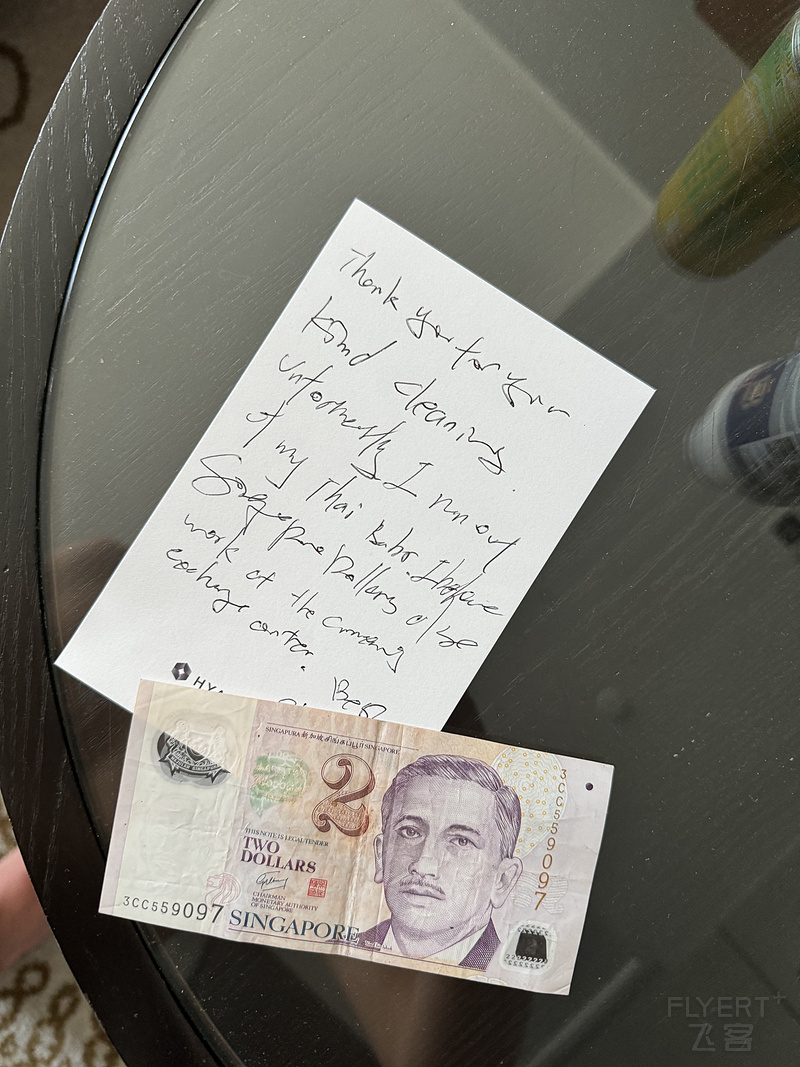 Thank you for your
kind cleaning
unfortunately I run out
of my Thai Baht. I believe
Singapore Dollars also
work at the currency
exchange center.
HY
SINGAPURA 新加坡 SINGAPORE
2
THIS NOTE IS LEGAL TENDER
TWO
DOLLARS
CHAIRMAN
MONETARY AUTHORITY
OF SINGAPORE
3CC559097
SINGAPORE
3CC559097
FLYERT+
飞客